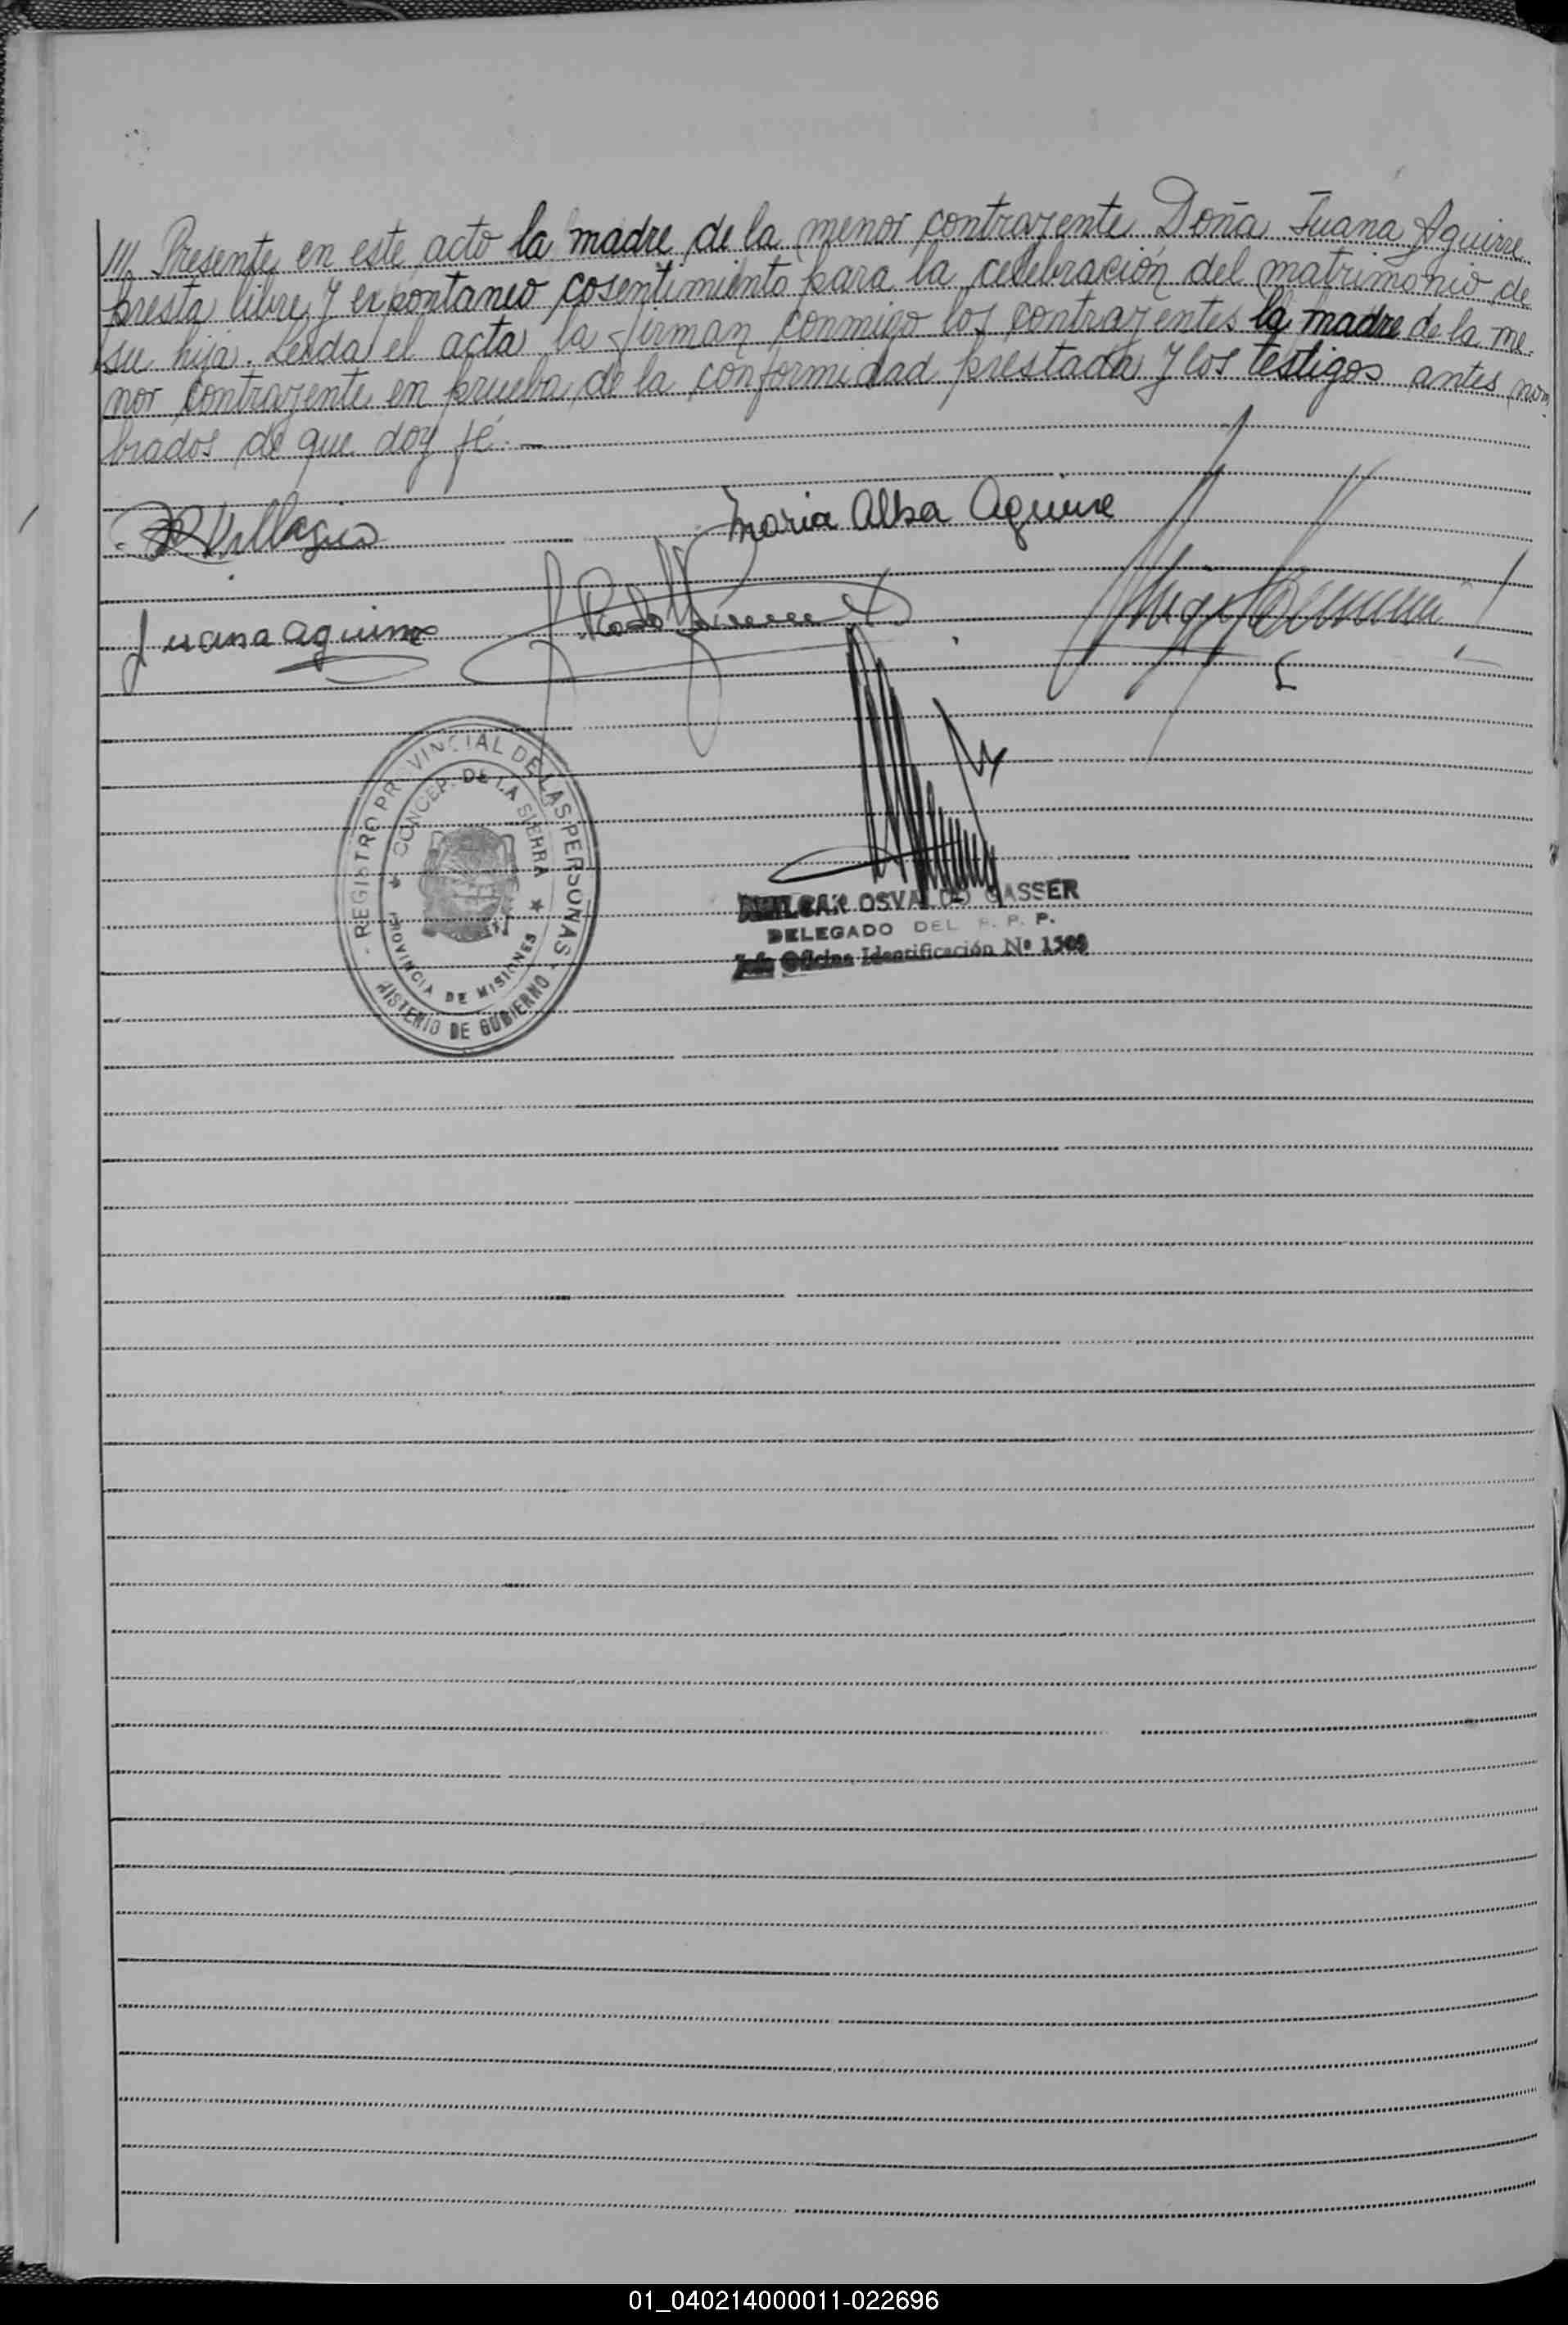 /// Presente en este acto la madre de la menor contrayente Doña Juana Aguirre
presta libre y expontaneo cosentimiento para la celebración del matrimonio de
su hija. Leida el acta la firman conmigo los contrayentes la madre de la me
nor contrayente en prueba de la conformidad prestada y los testigos antes nom
brados de que doy fé.—
Maria Alba Aguirre
Juana Aguirre
REGISTRO PROVINCIAL DE LAS PERSONAS
CONCEP. DE LA SIERRA
PROVINCIA DE MISIONES
MINISTERIO DE GOBIERNO
AMILCAR OSVALDO GASSER
DELEGADO DEL R. P. P.
Jefe Oficina Identificación Nº
01_040214000011-022696